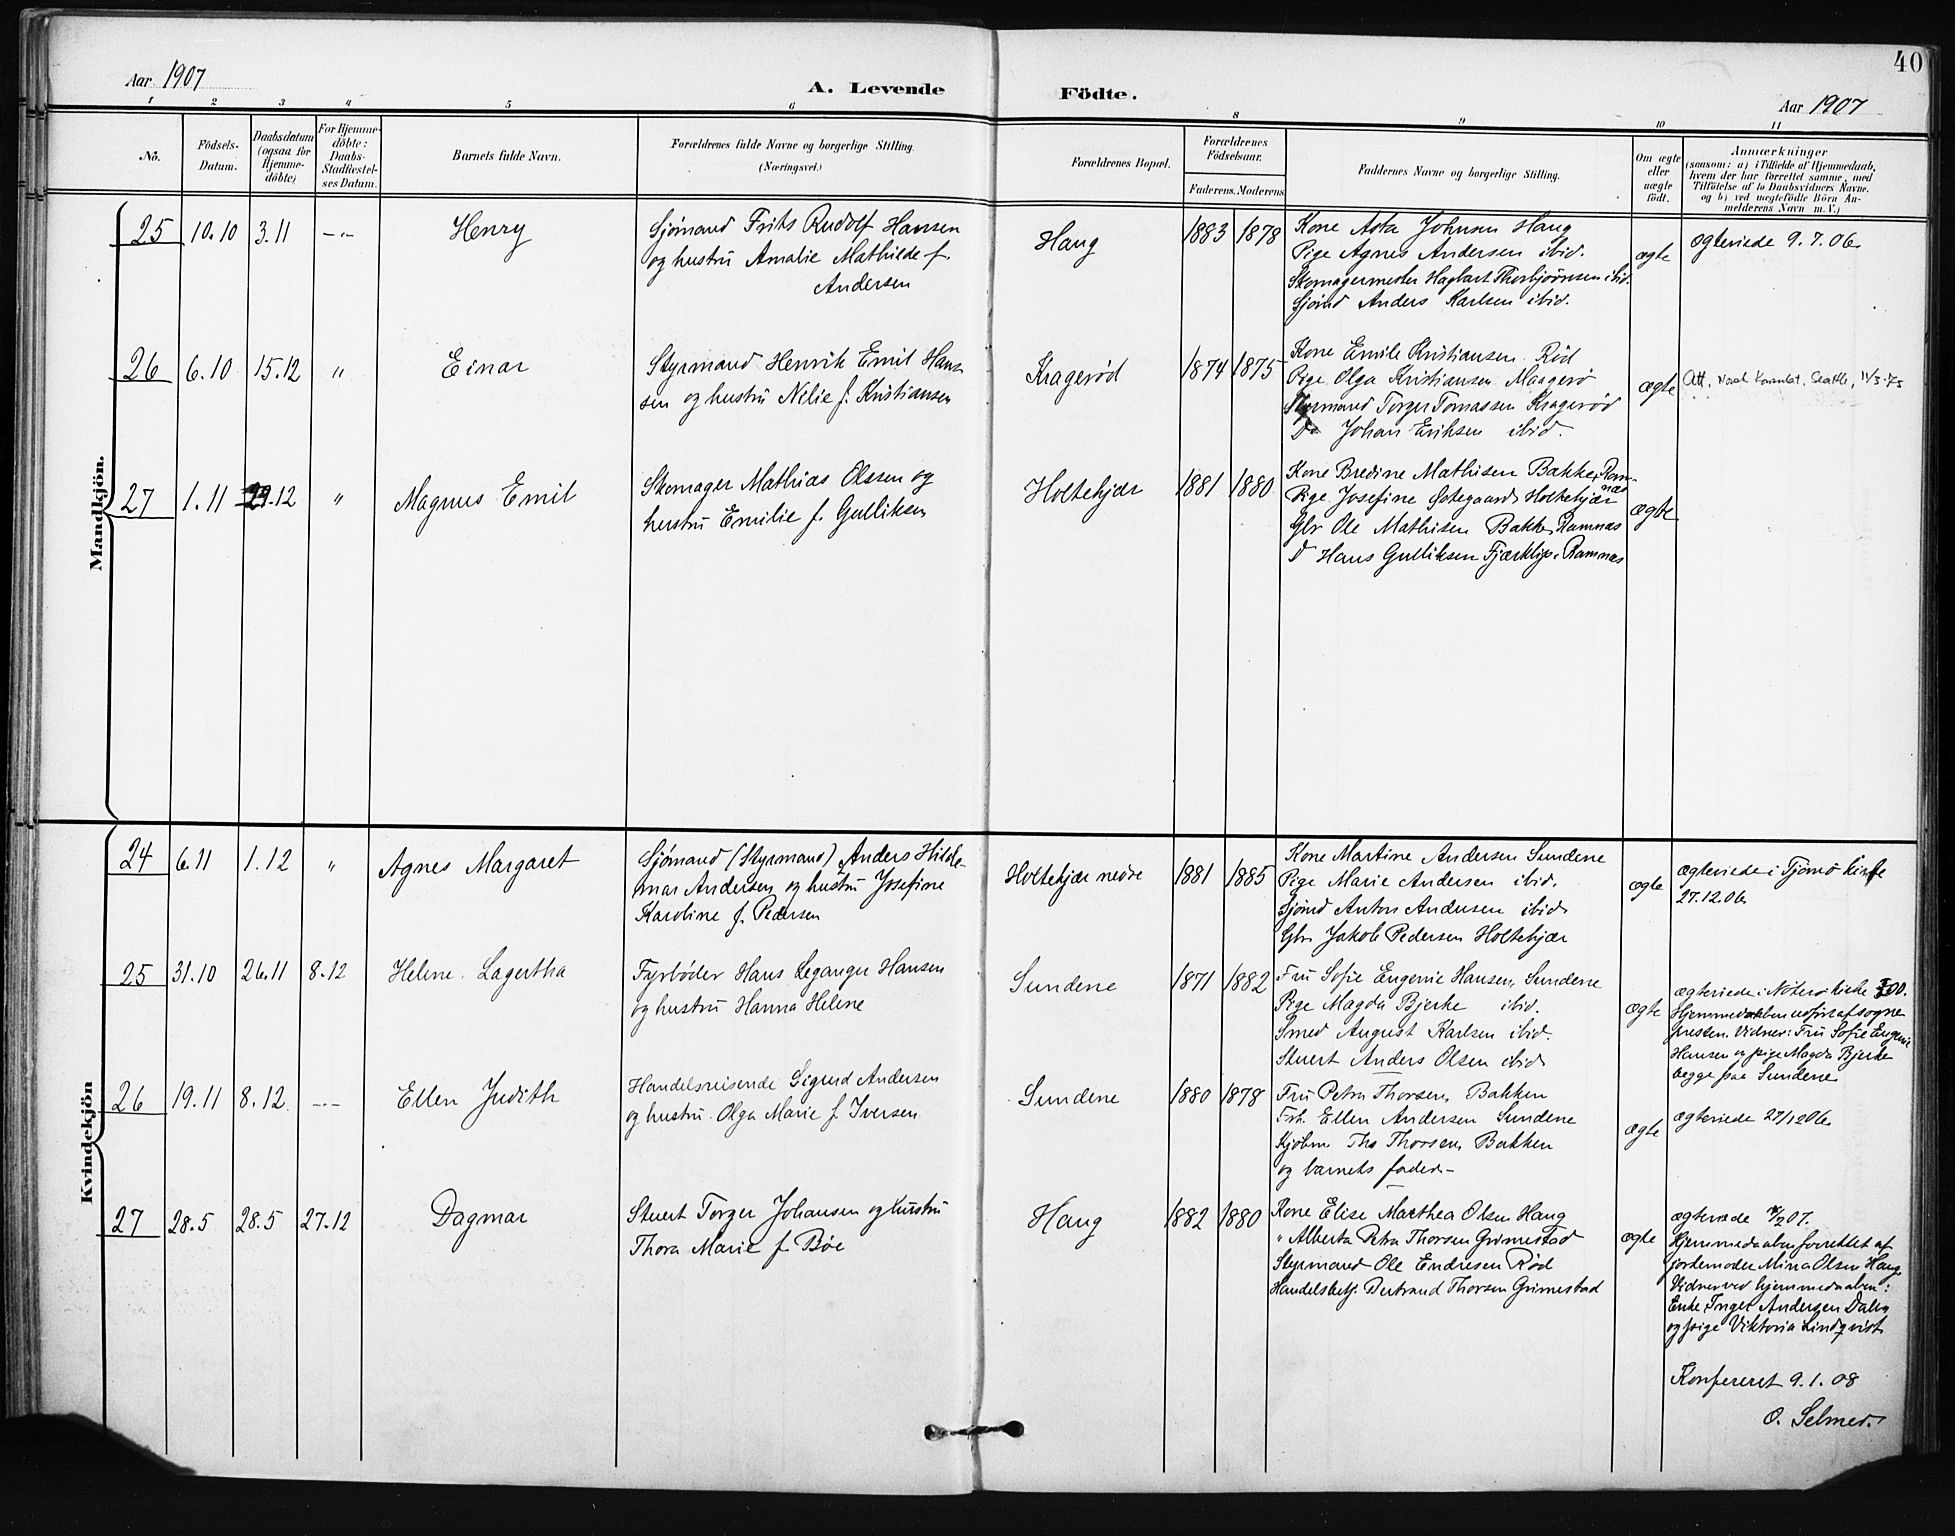 40
Aar 1907
A. Levende Födte.
Aar 1907
1 2 3 4 5 6 8 9 10 11
No.
Födsels-
Datum.
Daabsdatum
(ogsaa for
Hjemme-
döbte)
For Hjemme-
döbte:
Daabs-
Stadfæstel-
ses Datum.
Barnets fulde Navn.
Forældrenes fulde Navne og borgerlige Stilling.
(Næringsvei.)
Forældrenes Bopæl.
Forældrenes
Födselsaar.
Faderens. Moderens
Faddernes Navne og borgerlige Stilling.
Om ægte
eller
uægte
födt.
Anmærkninger
(saasom: a) i Tilfælde af Hjemmedaab,
hvem der har forrettet samme, med
Tilföielse af to Daabsvidners Navne.
og b) ved uægtefödte Börn An-
melderens Navn m. V.)
Mandkjön.
25 10.10 3.11 -"-
Henry
Sjömand Frits Rudolf Hansen
og hustru Amalie Mathilde f.
Andersen
Haug
1883 1878
Kone Asta Johnsen Haug
Pige Agnes Andersen ibid.
Skomagermester Hagbart Thorbjörnsen ibid.
Sjömd Anders Karlsen ibid.
ægte
ægteviede 9.7.06.
26 6.10 15.12 "
Einar
Styrmand Henrik Emil Han-
sen og hustru Nilie f. Kristiansen
Kragerød
1874 1875
Kone Emilie Kristiansen Rød
Pige Olga Kristiansen Maagerø
Styrmand Torger Tomassen Kragerød
Do Johan Eriksen ibid.
ægte
Att. Norsk Konsulat, Seattle, 11/3-75
27 1.11 29.12 "
Magnus Emil
Skomager Mathias Olssen og
hustru Emilie f. Gulliksen
Holtekjær
1881 1880
Kone Bredine Mathisen Bakke, Ram-
næs
Pige Josefine Østegaard Holtekjær
Gbr Ole Mathisen Bakke, Ramnæs
D Hans Gulliksen Ramnæs
ægte
Kvindekjön
24 6.11 1.12 "
Agnes Margaret
Sjömand (Styrmand) Anders Hilde-
mar Andersen og hustru Josefine
Karoline f. Pedersen
Holtekjær nedre
1881 1885
Kone Martine Andersen Sundene
Pige Marie Andersen ibid.
Sjömd Anton Andersen ibid.
Gbr Jakob Pedersen Holtekjær
ægte
ægteviede i Tjömö kirke
27.12.06.
25 31.10 26.11 8.12
Helene Lagertha
Fyrbøder Hans Leganger Hansen
og hustru Hanna Helene
Sundene
1871 1882
Fru Sofie Eugenie Hansen, Sundene
Pige Magda Bjerke ibid.
Smed August Karlsen ibid.
Stuert Anders Olsen ibid.
ægte
ægteviede i Nöterö kirke
Hjemmedaaben udført af sogne
presten. Vidner: Fru Sofie Eugenie
Hansen og pige Magda Bjerke
begge paa Sundene.
26 19.11 8.12 -"-
Ellen Judith
Handelsreisende Sigurd Andersen
og hustru Olga Marie f. Iversen
Sundene
1880 1878
Fru Petra Thorsen, Bakken
Frk. Ellen Andersen Sundene
Kjøbm Ths Thorsen, Bakken
og barnets fader.-
ægte
ægteviede 27/12 06.
27 28.5 28.5 27.12
Dagmar
Stuert Torger Johansen og hustru
Thora Marie f. Bøe
Haug
1882 1880
Kone Elise Marthea Olsen Haug
" Alberta Petra Thorsen Grimestad
Styrmand Ole Endresen Rød
Handelsbetj. Bertrand Thorsen Grimestad
ægte
ægteviede 07.
Hjemmedaaben forrettet af
jordemoder Mina Olsen Haug.
Vidner ved hjemmedaaben:
Enke Inger Andersen
og pige Viktoria Lindqvist
Konfereret 9.1.08
O. Selmer.